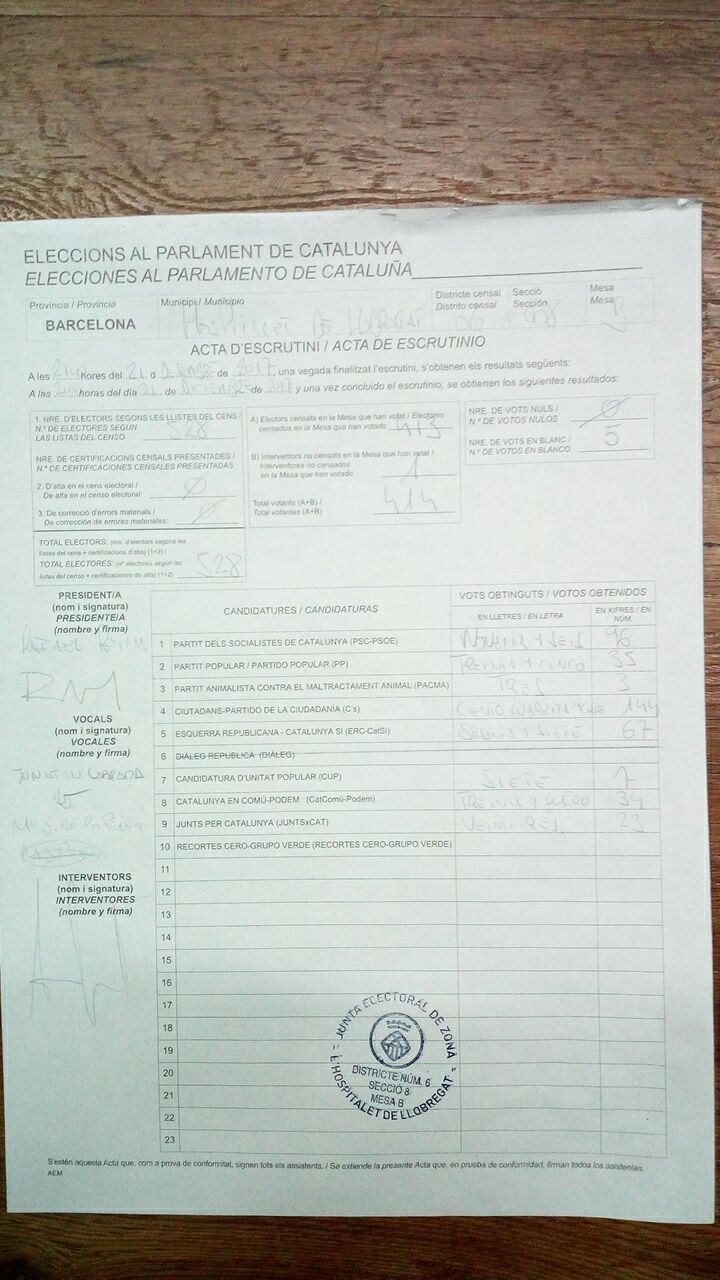 ELECCIONS AL PARLAMENT DE CATALUNYA
ELECCIONES AL PARLAMENTO DE CATALUÑA
Província / Provincia
Municipi / Municipio
Districte censal
Distrito censal
Secció
Sección
Mesa
Mesa
BARCELONA HOSPITALET DE LLOBREGAT 06 008 B
ACTA D'ESCRUTINI / ACTA DE ESCRUTINIO
A les hores del 21 d de 2017 una vegada finalitzat l'escrutini, s'obtenen els resultats següents:
A las horas del día 21 de DICIEMBRE de 2017 y una vez concluido el escrutinio, se obtienen los siguientes resultados:
1. NRE. D'ELECTORS SEGONS LES LLISTES DEL CENS /
N.º DE ELECTORES SEGÚN
LAS LISTAS DEL CENSO 528
NRE. DE CERTIFICACIONS CENSALS PRESENTADES /
N.º DE CERTIFICACIONES CENSALES PRESENTADAS
2. D'alta en el cens electoral /
De alta en el censo electoral: Ø
3. De correcció d'errors materials /
De corrección de errores materiales: Ø
TOTAL ELECTORS: (nre. d'electors segons les
llistes del cens + certificacions d'alta) (1+2) /
TOTAL ELECTORES: (nº electores según las
listas del censo + certificaciones de alta) (1+2) 528
A) Electors censats en la Mesa que han votat / Electores
censados en la Mesa que han votado 413
B) Interventors no censats en la Mesa que han votat /
Interventores no censados
en la Mesa que han votado 1
Total votants (A+B) /
Total votantes (A+B) 414
NRE. DE VOTS NULS /
N.º DE VOTOS NULOS Ø
NRE. DE VOTS EN BLANC /
N.º DE VOTOS EN BLANCO 5
PRESIDENT/A
(nom i signatura)
PRESIDENTE/A
(nombre y firma)
RAFAEL
VOCALS
(nom i signatura)
VOCALES
(nombre y firma)
INTERVENTORS
(nom i signatura)
INTERVENTORES
(nombre y firma)
CANDIDATURES / CANDIDATURAS
VOTS OBTINGUTS / VOTOS OBTENIDOS
EN LLETRES / EN LETRA
EN XIFRES / EN NÚM.
1 PARTIT DELS SOCIALISTES DE CATALUNYA (PSC-PSOE) NOVENTA Y SEIS 96
2 PARTIT POPULAR / PARTIDO POPULAR (PP) TREINTA Y CINCO 35
3 PARTIT ANIMALISTA CONTRA EL MALTRACTAMENT ANIMAL (PACMA) TRES 3
4 CIUTADANS-PARTIDO DE LA CIUDADANÍA (C's) CIENTO CUARENTA Y 144
5 ESQUERRA REPUBLICANA - CATALUNYA SI (ERC-CatSI) SESENTA Y SIETE 67
6 DIÀLEG REPUBLICÀ (DIÀLEG)
7 CANDIDATURA D'UNITAT POPULAR (CUP) SIETE 7
8 CATALUNYA EN COMÚ-PODEM (CatComú-Podem) TREINTA Y CUATRO 34
9 JUNTS PER CATALUNYA (JUNTSxCAT) VEINTITRES 23
10 RECORTES CERO-GRUPO VERDE (RECORTES CERO-GRUPO VERDE)
11
12
13
14
15
16
17
18
19
20
21
22
23
JUNTA ELECTORAL DE ZONA
DISTRICTE NÚM. 6
SECCIÓ 8
MESA B
L'HOSPITALET DE LLOBREGAT
S'estén aquesta Acta que, com a prova de conformitat, signen tots els assistents. / Se extiende la presente Acta que, en prueba de conformidad, firman todos los asistentes.
AEM